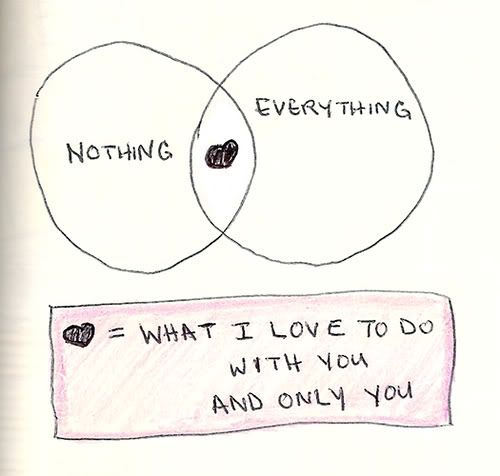 NOTHING
EVERYTHING
= WHAT I LOVE TO DO
WITH YOU
AND ONLY YOU